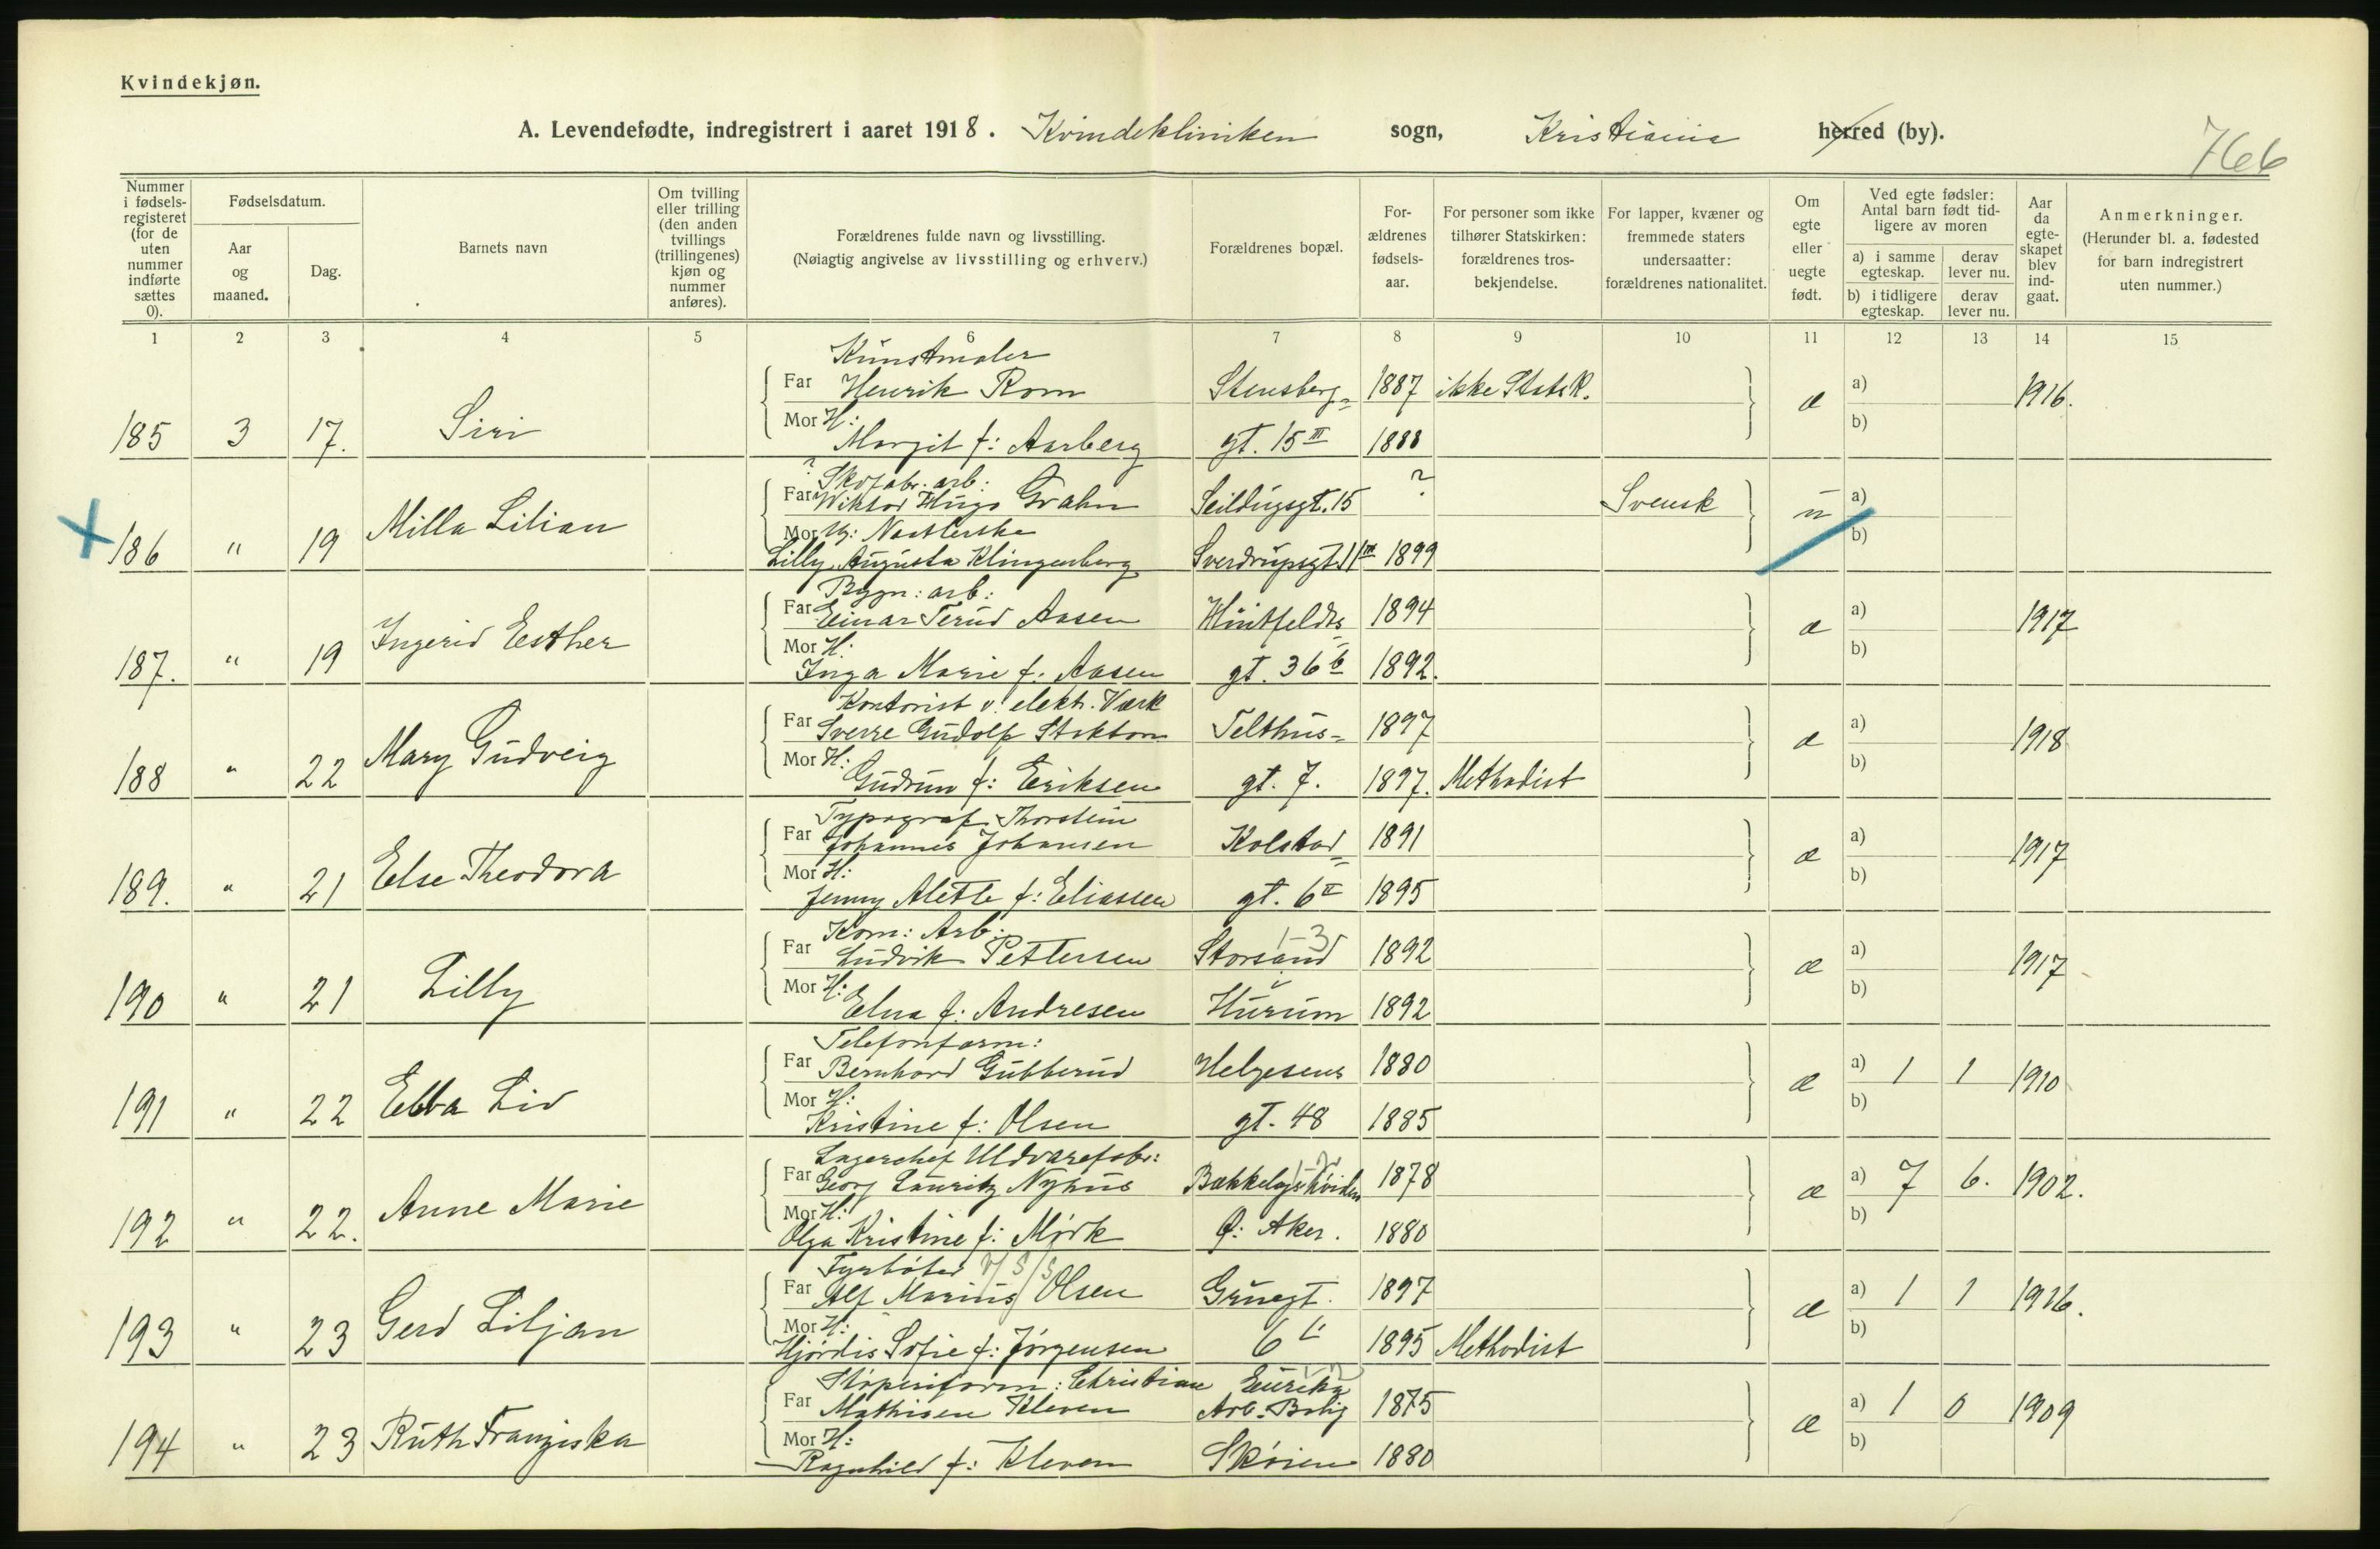 Kvindekjøn.
A. Levendefødte, indregistrert i aaret 1918. Kvindekliniken sogn, Kristiania herred (by).
766
Nummer i fødsels-registeret (for de uten nummer indførte sættes 0).
Fødselsdatum.
Aar og maaned.
Dag.
Barnets navn
Om tvilling eller trilling (den anden tvillings (trillingenes) kjøn og nummer anføres).
Forældrenes fulde navn og livsstilling.
(Nøiagtig angivelse av livsstilling og erhverv.)
Forældrenes bopæl.
For-ældrenes fødsels-aar.
For personer som ikke tilhører Statskirken: forældrenes tros-bekjendelse.
For lapper, kvæner og fremmede staters undersaatter: forældrenes nationalitet.
Om egte eller uegte født.
Ved egte fødsler: Antal barn født tid-ligere av moren
a) i samme egteskap.
derav lever nu.
b) i tidligere egteskap.
derav lever nu.
Aar da egte-skapet blev ind-gaat.
Anmerkninger.
(Herunder bl. a. fødested for barn indregistrert uten nummer.)
1 2 3 4 5 6 7 8 9 10 11 12 13 14 15
Kunstmaler
Far Henrik Rom Stensberg- 1887 ikke Statsk. a) 1916.
185 3 17. Siri æ
Mor H: Margit f: Aarberg gt. 15 III 1888 b)
? Skofabr. arb:
Far Wiktor Hugo Grahn Seildugsgt. 15 ? Svensk u a)
X 186 " 19 Milla Lilian
Mor Ug: b)
Lilly Augusta Klingenberg Sverdrupsgt. 11 III 1899
Bygn: arb:
Far Einar Terud Aasen Huitfeldts 1894 a) 1917
187. " 19 Ingerid Esther æ
Mor H: Inga Marie f: Aasen gt. 36 b 1892. b)
Kontorist v. elektr. Værk
Far Sverre Gudolf Stokton Telthus- 1897 a) 1918
188 " 22 Mary Gudveig æ
Mor H: Gudrun f: Eriksen gt. 7. 1897. Methodist b)
Typograf Thorstein
Far Johannes Johansen Kolstad- 1891 a) 1917
189. " 21 Else Theodora æ
Mor H: Jenny Alette f: Eliassen gt. 6 II 1895 b)
Kom: Arb: 1-3
Far Ludvik Pettersen Storsand 1892 a) 1917
190 " 21 Lilly æ
Mor H: Elna f: Andresen Hurum 1892 b)
Telefonform:
Far Bernhard Gubberud Helgesens 1880 a) 1 1 1910
191 " 22 Ebba Liv æ
Mor H: Kristine f: Olsen gt. 48 1885 b)
Lagerchef Uldvarefabr:
Far Georg Lauritz Nyhus Bækkelagshøiden 1878 a) 7 6. 1902.
192 " 22. Anne Marie æ
Mor H: Olga Kristine f: Mörk Ø: Aker. 1880 b)
Fyrbøter
Far Alf Marius Olsen Gruegt. 1897 a) 1 1 1916.
193 " 23 Gerd Liljan æ
Mor H: Hjördis Sofie f: Jörgensen 6 1895 Methodist b)
Støperiform: Christian Eureka
Far Mathisen Kleven Arb. Bolig 1875 a) 1 0 1909
194 " 23 Ruth Franziska æ
Mor H: Ragnhild f: Kleven Skøien 1880 b)